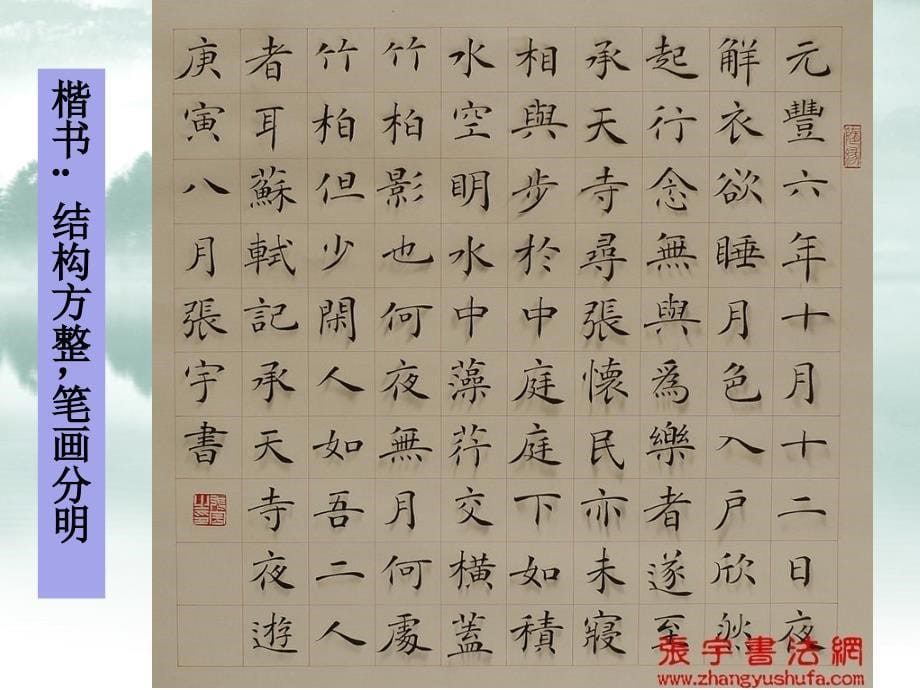 楷书：结构方整，笔画分明
元豐六年十月十二日夜
解衣欲睡月色入戶欣然
起行念無與爲樂者遂至
承天寺尋張懷民亦未寢
相與步於中庭庭下如積
水空明水中藻荇交橫蓋
竹柏影也何夜無月何處
竹柏但少閑人如吾二人
者耳蘇軾記承天寺夜遊
庚寅八月張宇書
張宇書法網
www.zhangyushufa.com